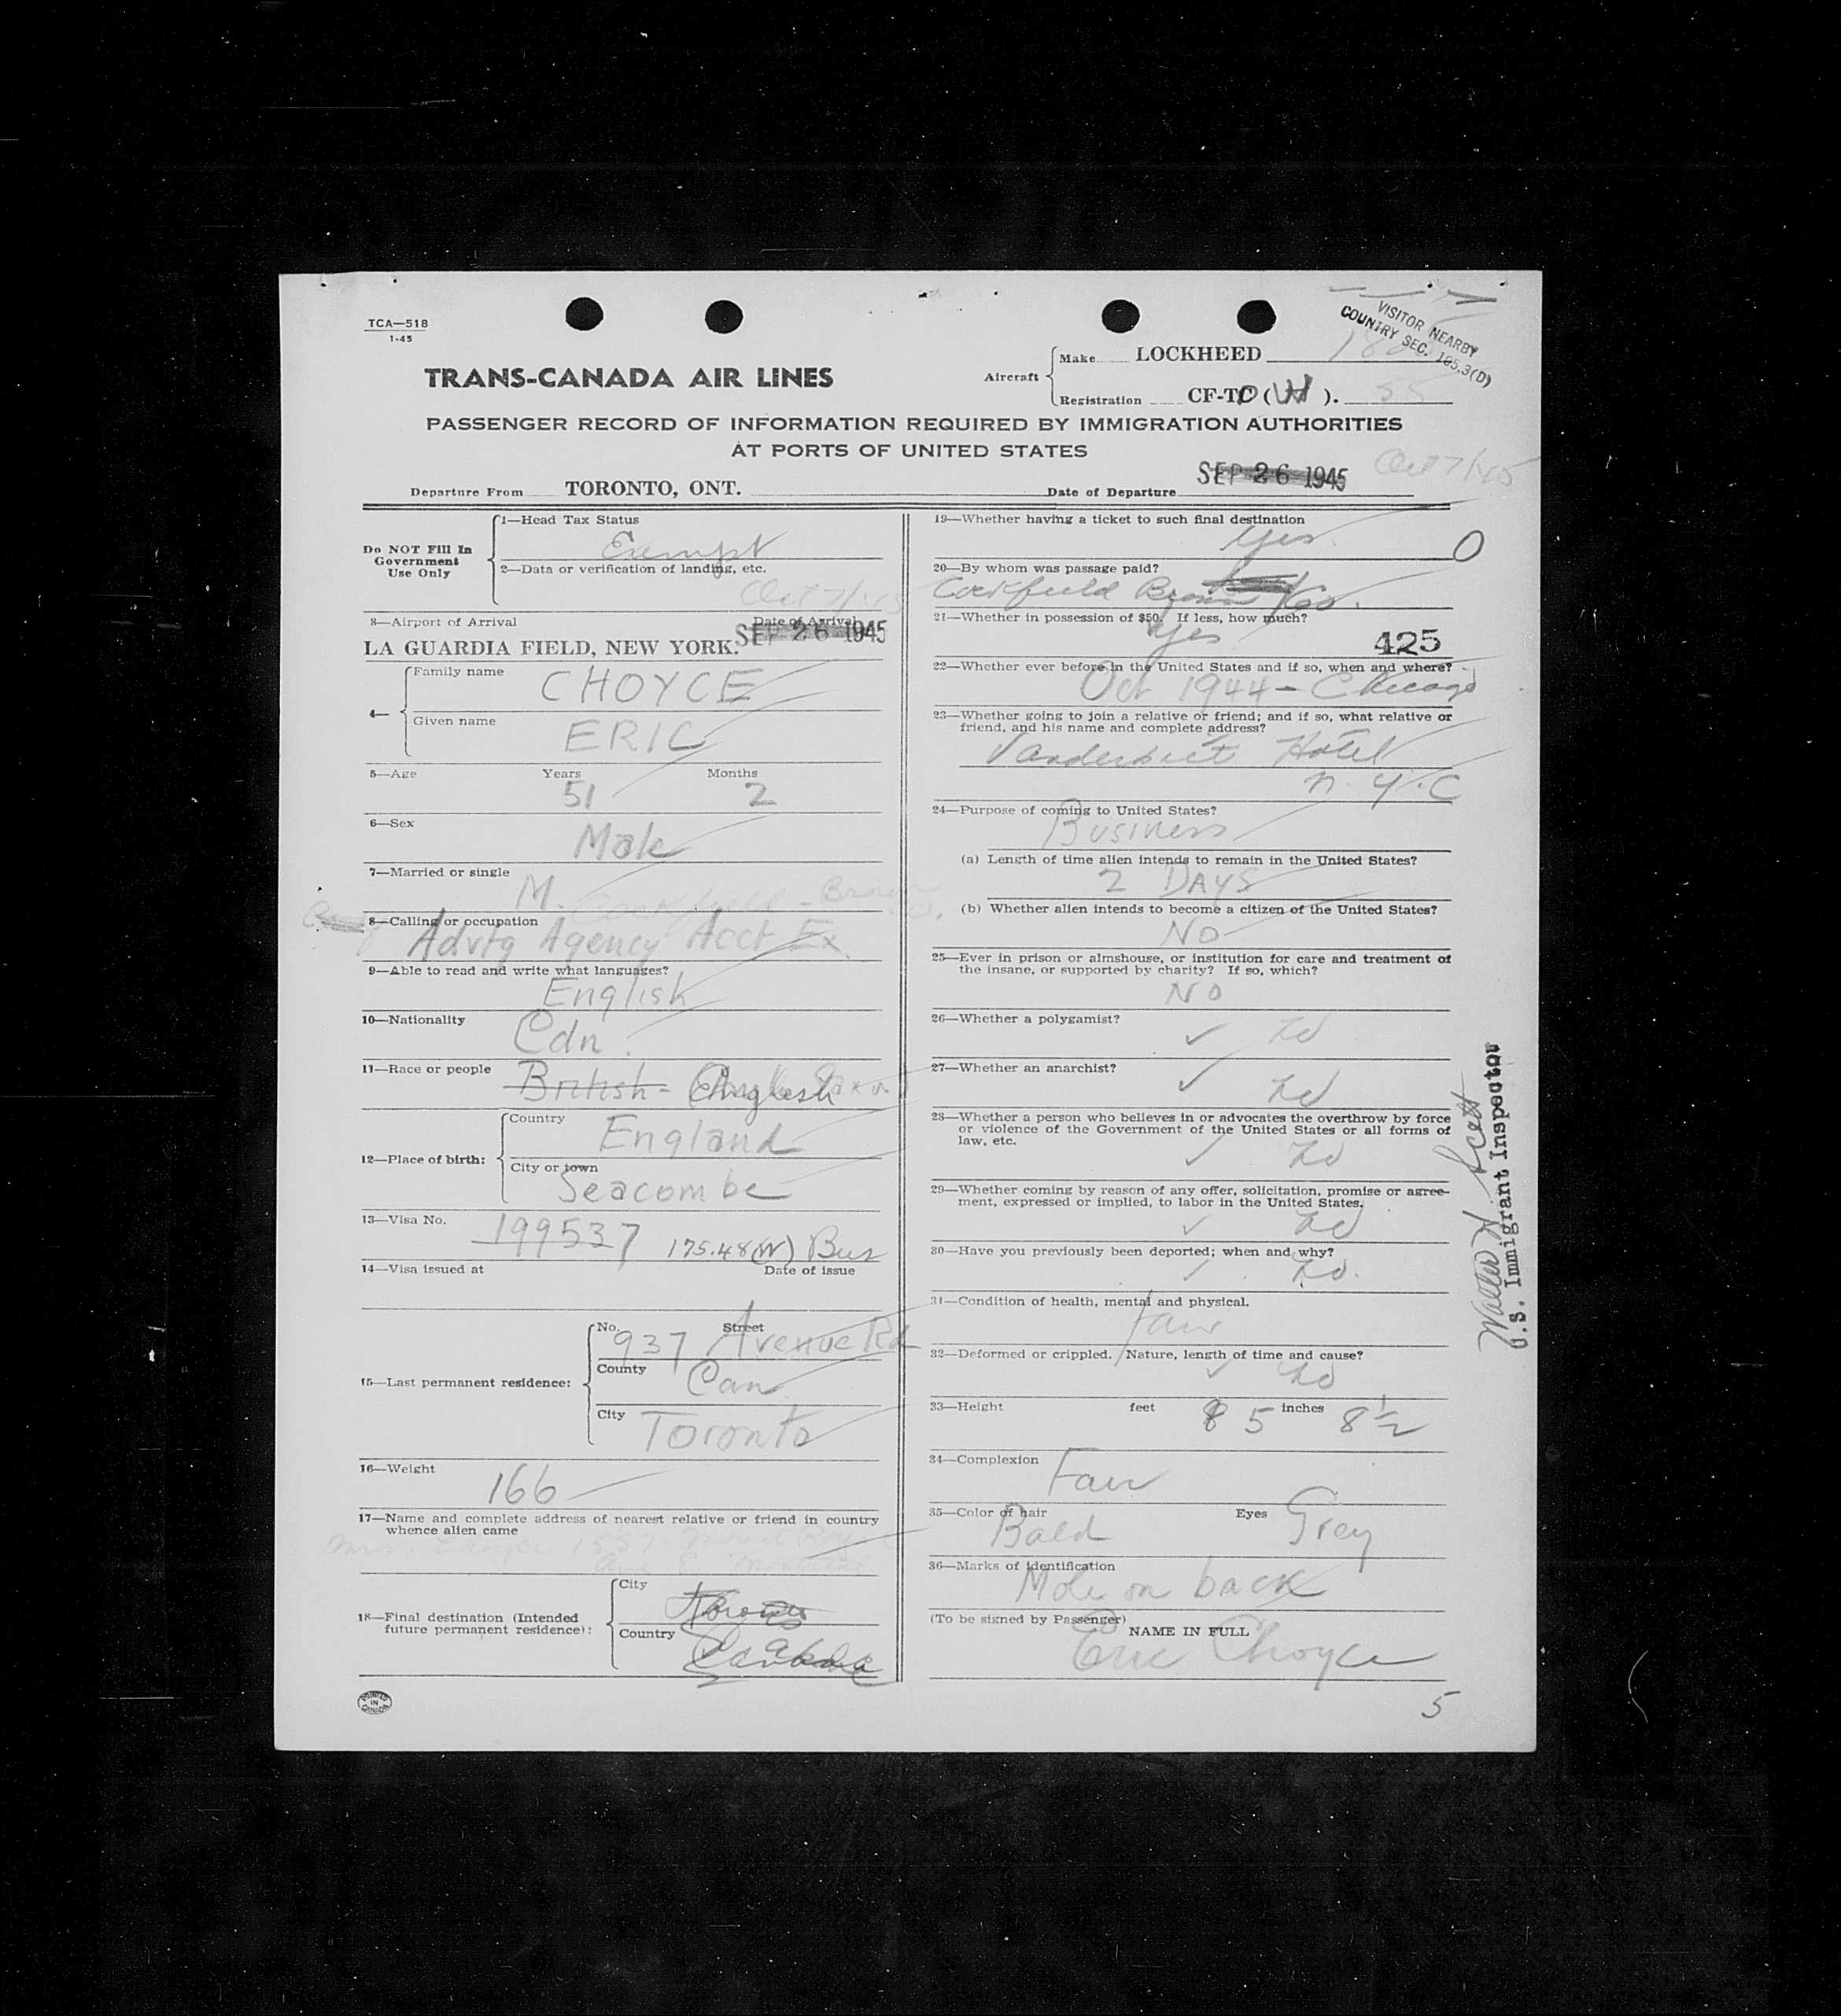 TCA—518
1-45
VISITOR NEARBY
COUNTRY SEC. 185.3(D)
TRANS-CANADA AIR LINES
Aircraft
Make LOCKHEED
Registration CF-TC ( ).
PASSENGER RECORD OF INFORMATION REQUIRED BY IMMIGRATION AUTHORITIES
AT PORTS OF UNITED STATES
Departure From TORONTO, ONT.
Date of Departure SEP 26 1945 Oct 7/45
Do NOT Fill In
Government
Use Only
1—Head Tax Status
Exempt
2—Data or verification of landing, etc.
Oct 7/45
3—Airport of Arrival Date of Arrival
LA GUARDIA FIELD, NEW YORK. SEP 26 1945
4—
Family name CHOYCE
Given name ERIC
5—Age Years Months
51 2
6—Sex
Male
7—Married or single
M. Cockfield - Brown
8—Calling or occupation
Advtg Agency Acct Ex
9—Able to read and write what languages?
English
10—Nationality
Cdn.
11—Race or people British - English
12—Place of birth:
Country
England
City or town
Seacombe
13—Visa No. 199537 175.48(W) Bus
14—Visa issued at Date of issue
15—Last permanent residence:
No. Street
937 Avenue Rd
County Can
City Toronto
16—Weight
166
17—Name and complete address of nearest relative or friend in country
whence alien came
Mrs. Choyce 1557 Mount Royal
Ave E. Montreal
18—Final destination (Intended
future permanent residence):
City Toronto
Country Canada
PRINTED
IN
CANADA
19—Whether having a ticket to such final destination
Yes. 0
20—By whom was passage paid?
Cockfield Brown Co.
21—Whether in possession of $50. If less, how much?
Yes 425
22—Whether ever before in the United States and if so, when and where?
Oct 1944 - Chicago
23—Whether going to join a relative or friend; and if so, what relative or
friend, and his name and complete address?
Vanderbilt Hotel
N.Y.C
24—Purpose of coming to United States?
Business
(a) Length of time alien intends to remain in the United States?
2 DAYS
(b) Whether alien intends to become a citizen of the United States?
NO
25—Ever in prison or almshouse, or institution for care and treatment of
the insane, or supported by charity? If so, which?
NO
26—Whether a polygamist?
✓ No
27—Whether an anarchist?
✓ No
28—Whether a person who believes in or advocates the overthrow by force
or violence of the Government of the United States or all forms of
law, etc.
✓ No
29—Whether coming by reason of any offer, solicitation, promise or agree-
ment, expressed or implied, to labor in the United States.
✓ No
30—Have you previously been deported; when and why?
✓ No.
31—Condition of health, mental and physical.
Fair
32—Deformed or crippled. Nature, length of time and cause?
✓ No
33—Height feet 5 inches 8½
34—Complexion
Fair
35—Color of hair Eyes
Bald Grey
36—Marks of identification
Mole on back
(To be signed by Passenger)
NAME IN FULL
Eric Choyce
5
Walter N. Scott
U.S. Immigrant Inspector